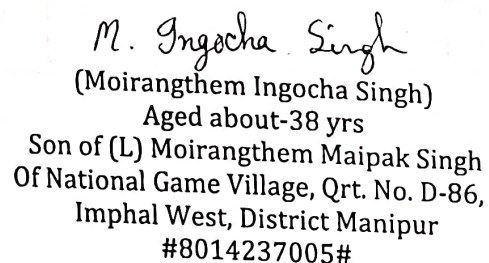 M. Ingocha Singh
(Moirangthem Ingocha Singh)
Aged about-38 yrs
Son of (L) Moirangthem Maipak Singh
Of National Game Village, Qrt. No. D-86,
Imphal West, District Manipur
#8014237005#